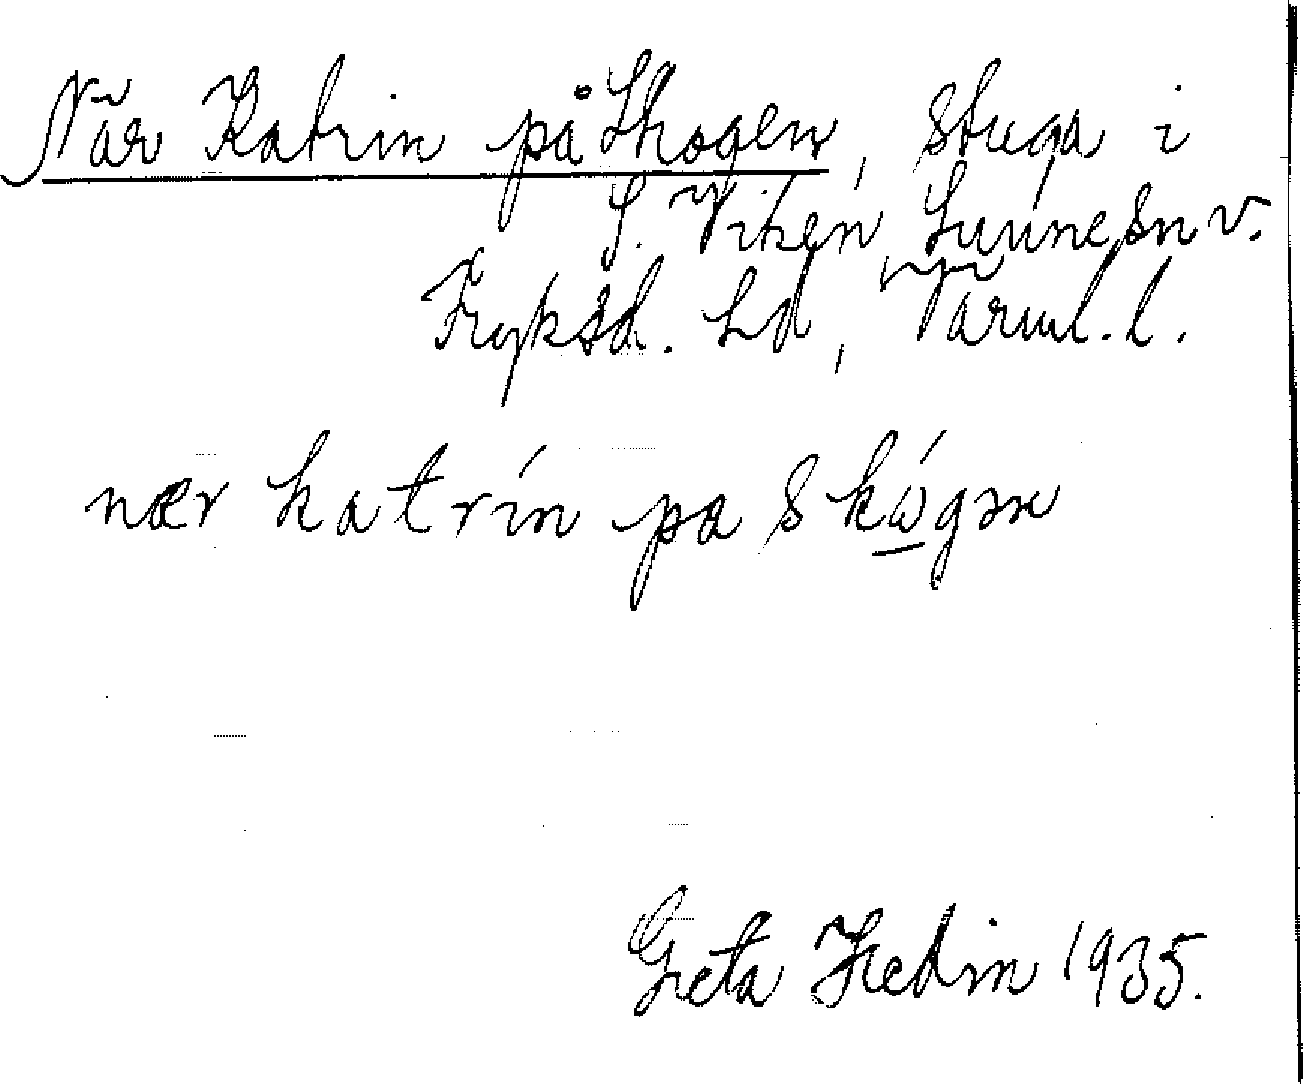 När Katrin på Skogen, stuga i
S. Viken, Sunne sn v.
Fryksd. hd, Värml. l.
nær katrín pa skó̱gən
Greta Hedin 1935.